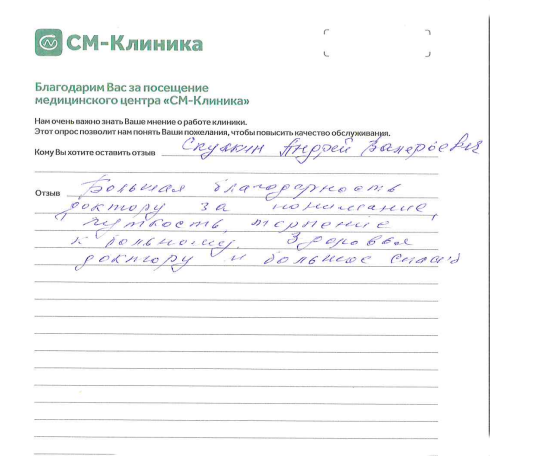 СМ-Клиника
Благодарим Вас за посещение
медицинского центра «СМ-Клиника»
Нам очень важно знать Ваше мнение о работе клиники.
Этот опрос позволит нам понять Ваши пожелания, чтобы повысить качество обслуживания.
Кому Вы хотите оставить отзыв Андрей Валерьевич
Отзыв Большая благодарность
доктору за понимание,
чуткость, терпение
к больному. Здоровья
доктору и большое спасиб